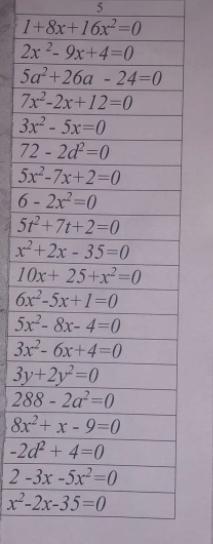 5
1+8x+16x²=0
2x ²- 9x+4=0
5a²+26a - 24=0
7x²-2x+12=0
3x² - 5x=0
72 - 2d²=0
5x²-7x+2=0
6 - 2x²=0
5t²+7t+2=0
x²+2x - 35=0
10x+ 25+x²=0
6x²-5x+1=0
5x²- 8x- 4=0
3x²- 6x+4=0
3y+2y²=0
288 - 2a²=0
8x²+ x - 9=0
-2d² + 4=0
2 -3x -5x²=0
x²-2x-35=0